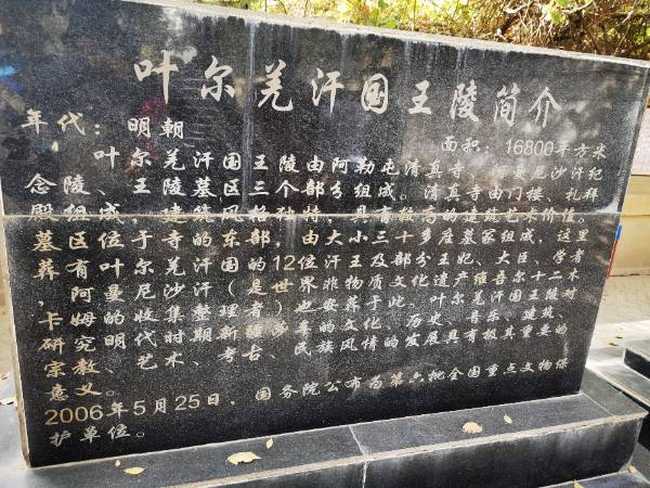 叶尔羌汗国王陵简介
年代：明朝
面积：16800平方米
叶尔羌汗国王陵由阿勒屯清真寺、阿曼尼沙汗纪
念陵、王陵墓区三个部分组成。清真寺由门楼、礼拜
殿组成，建筑风格独特，具有较高的建筑艺术价值。
墓区位于寺的东部，由大小三十多座墓冢组成，这里
葬有叶尔羌汗国的12位汗王及部分王妃、大臣、学者
，阿曼尼沙汗（是世界非物质文化遗产维吾尔十二木
卡姆的收集整理者）也安葬于此。叶尔羌汗国王陵对
研究明代时期新疆的文化、历史、音乐、建筑、
宗教、艺术、考古、民族风情的发展具有极其重要的
意义。
2006年5月25日，国务院公布为第六批全国重点文物保
护单位。